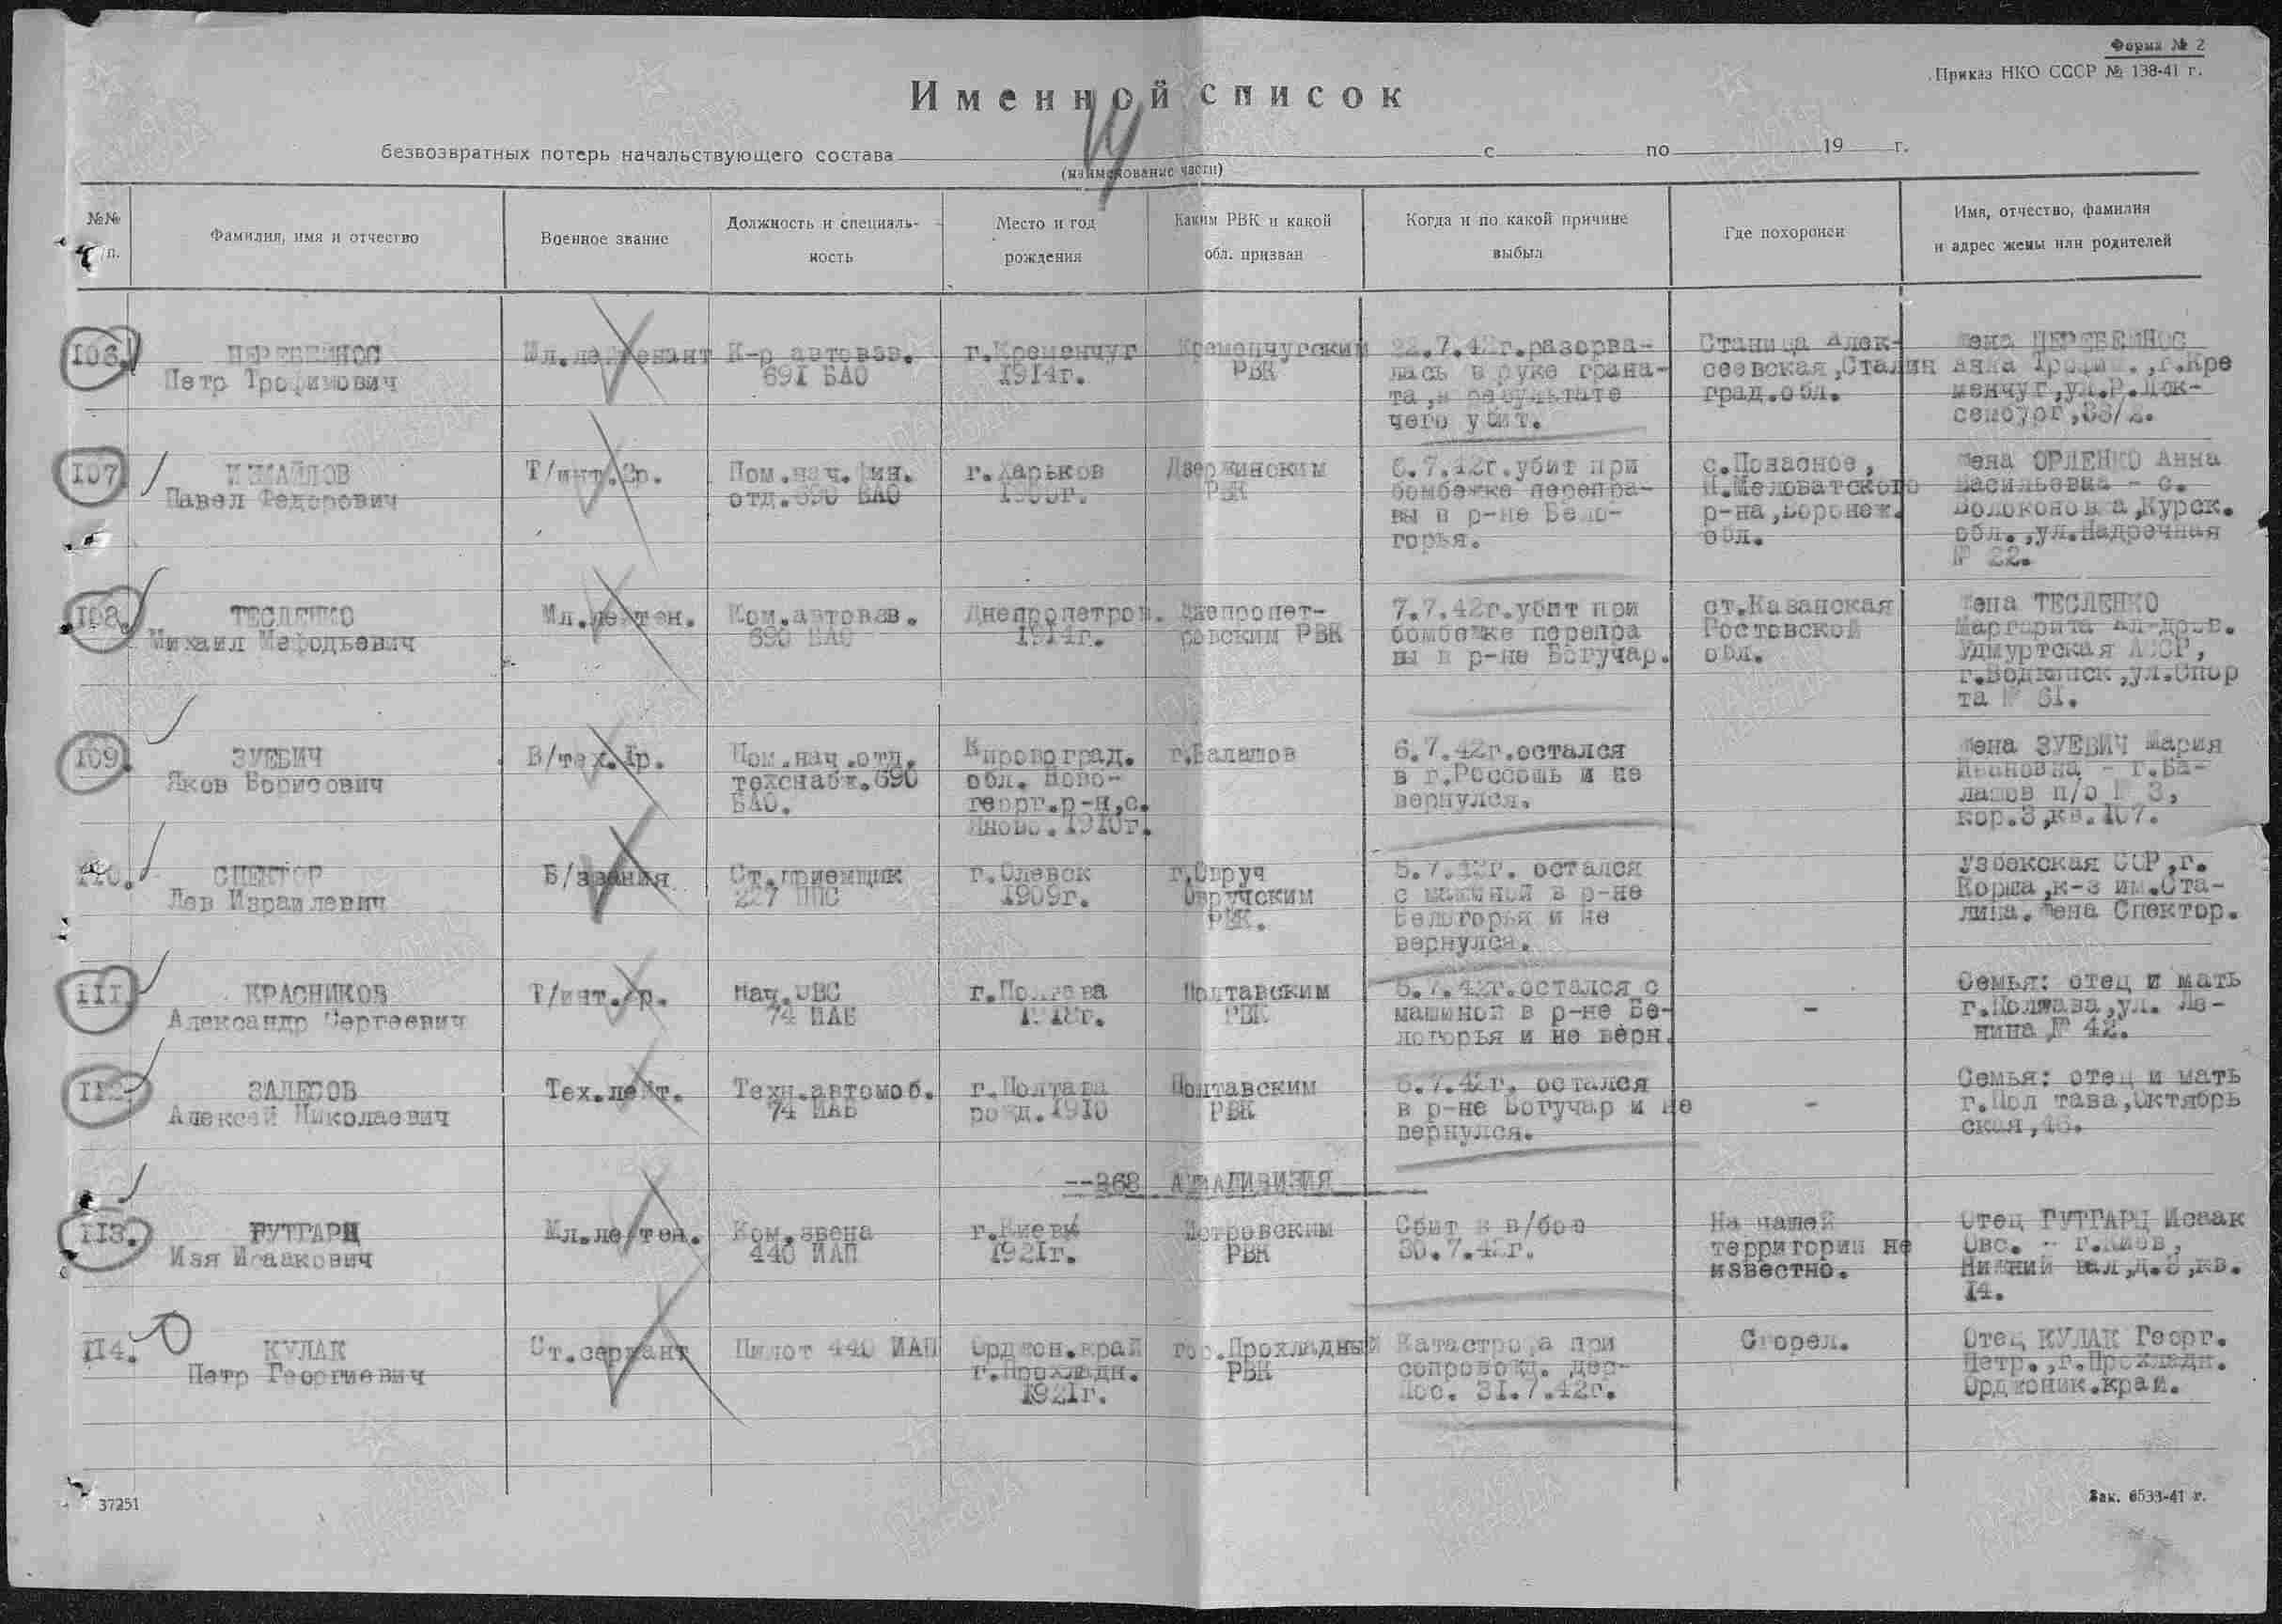 Форма № 2
Приказ НКО СССР № 138-41 г.
Именной список
безвозвратных потерь начальствующего состава с по 19 г.
(наименование части)
№№ п/п.
Фамилия, имя и отчество
Военное звание
Должность и специаль-
ность
Место и год
рождения
Каким РВК и какой
обл. призван
Когда и по какой причине
выбыл
Где похоронен
Имя, отчество, фамилия
и адрес жены или родителей
106.
ПЕРЕБЕЙНОС
Петр Трофимович
Мл.лейтенант
К-р автовзв.
691 БАО
г.Кременчуг
1914г.
Кременчугским
РВК
22.7.42г.разорва-
лась в руке грана-
та,в результате
чего убит.
Станица Алек-
сеевская,Сталин
град.обл.
Жена ПЕРЕБЕЙНОС
Анна Трофим.,г.Кре
менчуг,ул.Р.Люк-
сембург,
107
ИЗМАЙЛОВ
Павел Федорович
Т/инт.2р.
Пом.нач.фин.
отд.690 БАО
г.Харьков
Дзержинским
РВК
6.7.42г.убит при
бомбежке перепра-
вы в р-не Бело-
горья.
с.Попасное,
Н.Меловатского
р-на,Воронеж.
обл.
Жена ОРЛЕНКО Анна
Васильевна - с.
Волоконовка,Курск.
обл.,ул.Надречная
№ 22.
108.
ТЕСЛЕНКО
Михаил Мефодьевич
Мл.лейтен.
Ком.автовзв.
690 БАО
Днепропетров.
1914г.
Днепропет-
ровским РВК
7.7.42г.убит при
бомбежке перепра
вы в р-не Богучар.
ст.Казанская
Ростовской
обл.
Жена ТЕСЛЕНКО
Маргарита Ал-дров.
Удмуртская АССР,
г.Водкинск,ул.Спор
та № 61.
109.
ЗУЕВИЧ
Яков Борисович
В/тех.1р.
Пом.нач.отд.
техснабж.690
БАО.
Кировоград.
обл. Ново-
георг.р-н,с.
1910г.
г.Балашов
6.7.42г.остался
в г.Россошь и не
вернулся.
Жена ЗУЕВИЧ Мария
Ивановна - г.Ба-
лашов п/о № 3,
кор.3,кв.107.
110.
СПЕКТОР
Лев Израилевич
Б/звания
Ст.приемщик
227 ППС
г.Олевск
1909г.
г.Овруч
Овручским
РВК.
5.7.42г. остался
с машиной в р-не
Белогорья и не
вернулся.
Узбекская ССР,г.
Корша,к-з им.Ста-
лина. Жена Спектор.
111.
КРАСНИКОВ
Александр Сергеевич
Т/инт.
Нач.ОВС
74 ИАБ
г.Полтава
1918г.
Полтавским
РВК
5.7.42г.остался с
машиной в р-не Бе-
логорья и не верн.
-
Семья: отец и мать
г.Полтава,ул. Ле-
нина № 42.
112.
ЗАЛЕСОВ
Алексей Николаевич
Тех.лейт.
Техн.автомоб.
74 ИАБ
г.Полтава
рожд.1910
Полтавским
РВК
6.7.42г. остался
в р-не Богучар и не
вернулся.
-
Семья: отец и мать
г.Пол тава,Октябрь
ская,
--268 АВИАДИВИЗИЯ
113.
ГУТГАРЦ
Изя Исаакович
Мл.лейтен.
Ком.звена
440 ИАП
г.Киев
1921г.
Петровским
РВК
Сбит в в/бою
30.7.42г.
На нашей
территории не
известно.
Отец ГУТГАРЦ Исаак
Овс. - г.Киев,
Нижний вал,д.8,кв.
14.
114.
КУЛАК
Петр Георгиевич
Ст.сержант
Пилот 440 ИАП
Орджон.край
г.Прохладн.
1921г.
гор.Прохладный
РВК
Катастрофа при
сопровожд.
31.7.42г.
Сгорел.
Отец КУЛАК Георг.
Петр.,г.Прохладн.
Орджоник.край.
37251
Зак. 6533-41 г.